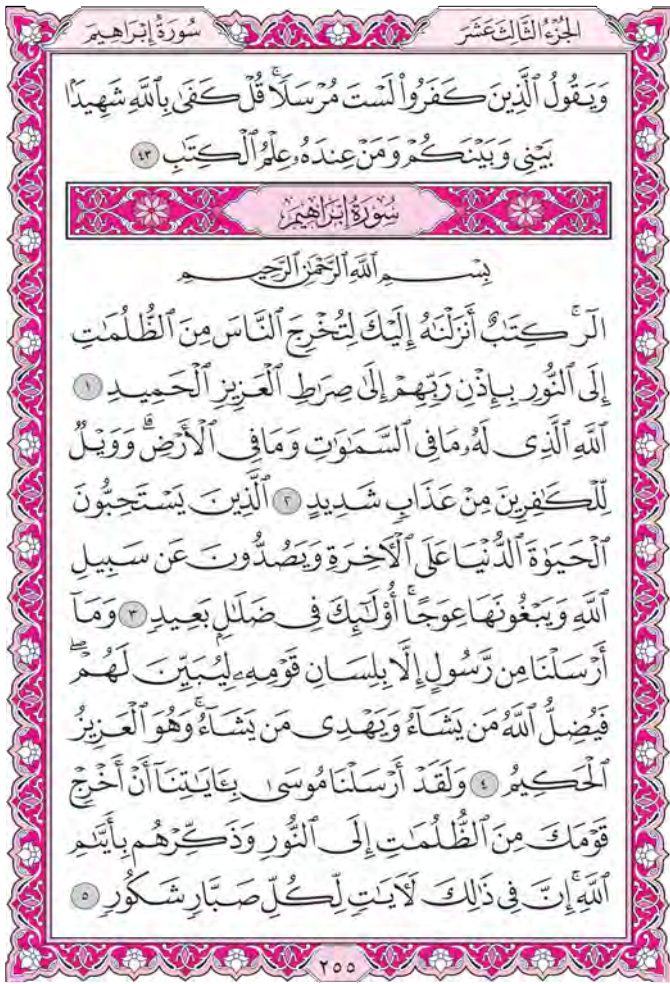 سُورَةُ إِبْرَاهِيم
الجُزْءُ الثَّالِثَ عَشَرَ
وَيَقُولُ ٱلَّذِينَ كَفَرُواْ لَسۡتَ مُرۡسَلٗاۚ قُلۡ كَفَىٰ بِٱللَّهِ شَهِيدَۢا
بَيۡنِي وَبَيۡنَكُمۡ وَمَنۡ عِندَهُۥ عِلۡمُ ٱلۡكِتَٰبِ ٤٣
سُورَةُ إِبْرَاهِيمَ
بِسْمِ ٱللَّهِ ٱلرَّحْمَٰنِ ٱلرَّحِيمِ
الٓرۚ كِتَٰبٌ أَنزَلۡنَٰهُ إِلَيۡكَ لِتُخۡرِجَ ٱلنَّاسَ مِنَ ٱلظُّلُمَٰتِ
إِلَى ٱلنُّورِ بِإِذۡنِ رَبِّهِمۡ إِلَىٰ صِرَٰطِ ٱلۡعَزِيزِ ٱلۡحَمِيدِ ١
ٱللَّهِ ٱلَّذِي لَهُۥ مَا فِي ٱلسَّمَٰوَٰتِ وَمَا فِي ٱلۡأَرۡضِۗ وَوَيۡلٞ
لِّلۡكَٰفِرِينَ مِنۡ عَذَابٖ شَدِيدٍ ٢ ٱلَّذِينَ يَسۡتَحِبُّونَ
ٱلۡحَيَوٰةَ ٱلدُّنۡيَا عَلَى ٱلۡأٓخِرَةِ وَيَصُدُّونَ عَن سَبِيلِ
ٱللَّهِ وَيَبۡغُونَهَا عِوَجًاۚ أُوْلَٰٓئِكَ فِي ضَلَٰلِۭ بَعِيدٖ ٣ وَمَآ
أَرۡسَلۡنَا مِن رَّسُولٍ إِلَّا بِلِسَانِ قَوۡمِهِۦ لِيُبَيِّنَ لَهُمۡۖ
فَيُضِلُّ ٱللَّهُ مَن يَشَآءُ وَيَهۡدِي مَن يَشَآءُۚ وَهُوَ ٱلۡعَزِيزُ
ٱلۡحَكِيمُ ٤ وَلَقَدۡ أَرۡسَلۡنَا مُوسَىٰ بِـَٔايَٰتِنَآ أَنۡ أَخۡرِجۡ
قَوۡمَكَ مِنَ ٱلظُّلُمَٰتِ إِلَى ٱلنُّورِ وَذَكِّرۡهُم بِأَيَّىٰمِ
ٱللَّهِۚ إِنَّ فِي ذَٰلِكَ لَأٓيَٰتٖ لِّكُلِّ صَبَّارٖ شَكُورٖ ٥
٢٥٥